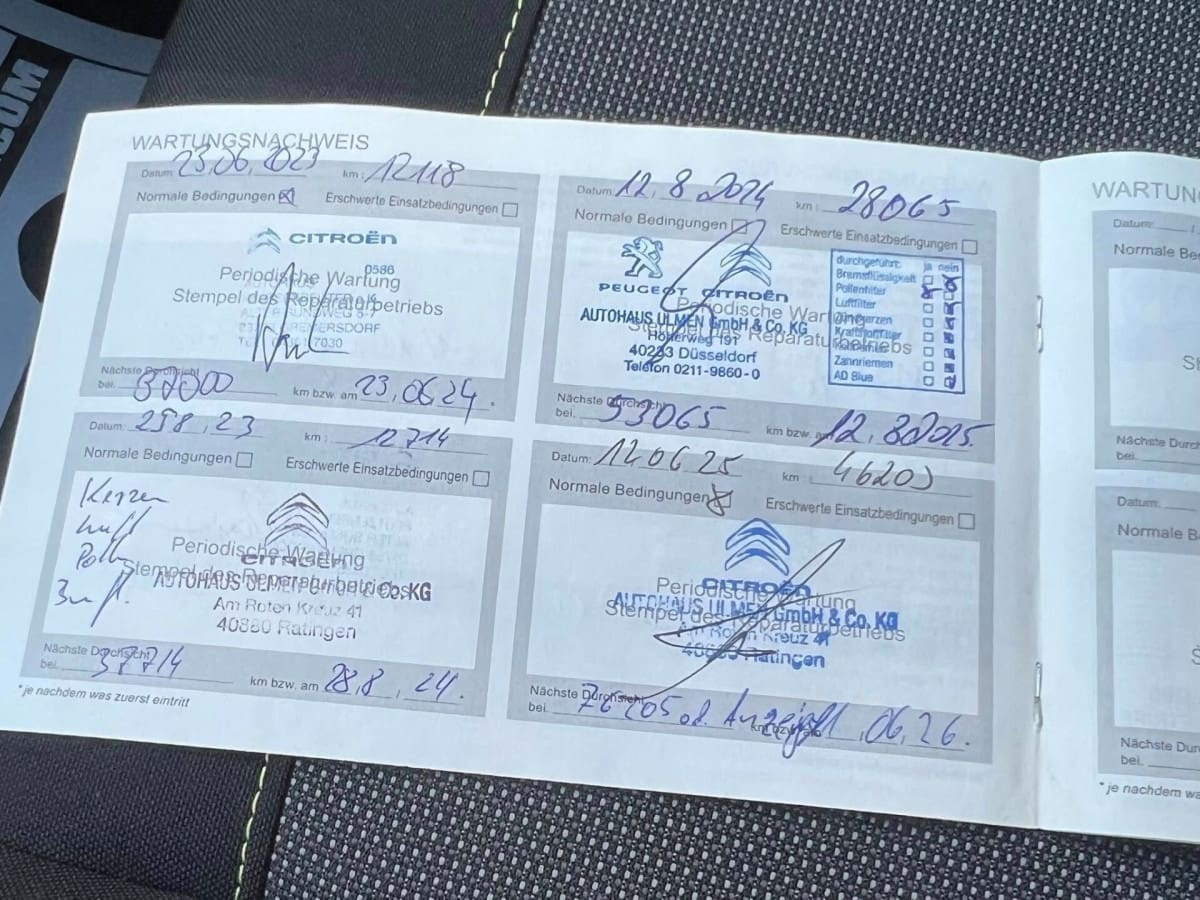 COM
WARTUNGSNACHWEIS
Datum: 23.06.2023 km: 12118
Normale Bedingungen Erschwerte Einsatzbedingungen
CITROËN
0586
Periodische Wartung
Stempel des Reparaturbetriebs
7030
Nächste Durchsicht
bei. km bzw. am 23.06.24.
Datum: 12.8.2024 km: 28065
Normale Bedingungen Erschwerte Einsatzbedingungen
PEUGEOT CITROËN
Periodische Wartung
AUTOHAUS ULMEN GmbH & Co. KG
Stempel des Reparaturbetriebs
Höherweg 191
40233 Düsseldorf
Telefon 0211-9860-0
durchgeführt: ja nein
Bremsflüssigkeit
Pollenfilter
Luftfilter
Zündkerzen
Kraftstofffilter
Zahnriemen
AD Blue
Nächste Durchsicht
bei. 53065 km bzw. am 12.8.2025
Datum: 28.8.23 km: 12714
Normale Bedingungen Erschwerte Einsatzbedingungen
Kerzen
Luft
CITROËN
Periodische Wartung
Stempel des Reparaturbetriebs
AUTOHAUS ULMEN GmbH & Co. KG
Am Roten Kreuz 41
40880 Ratingen
Nächste Durchsicht
bei. 37714 km bzw. am 28.8.24.
*je nachdem was zuerst eintritt
Datum: 12.06.25 km 46205
Normale Bedingungen Erschwerte Einsatzbedingungen
CITROËN
Periodische Wartung
AUTOHAUS ULMEN GmbH & Co. KG
Stempel des Reparaturbetriebs
Am Roten Kreuz 41
40880 Ratingen
Nächste Durchsicht
bei. 76205 od. 06.26.
WARTUN
Datum:
Normale Be
St
Nächste Durc
bei.
Datum:
Normale B
S
Nächste Durch
bei.
*je nachdem wa